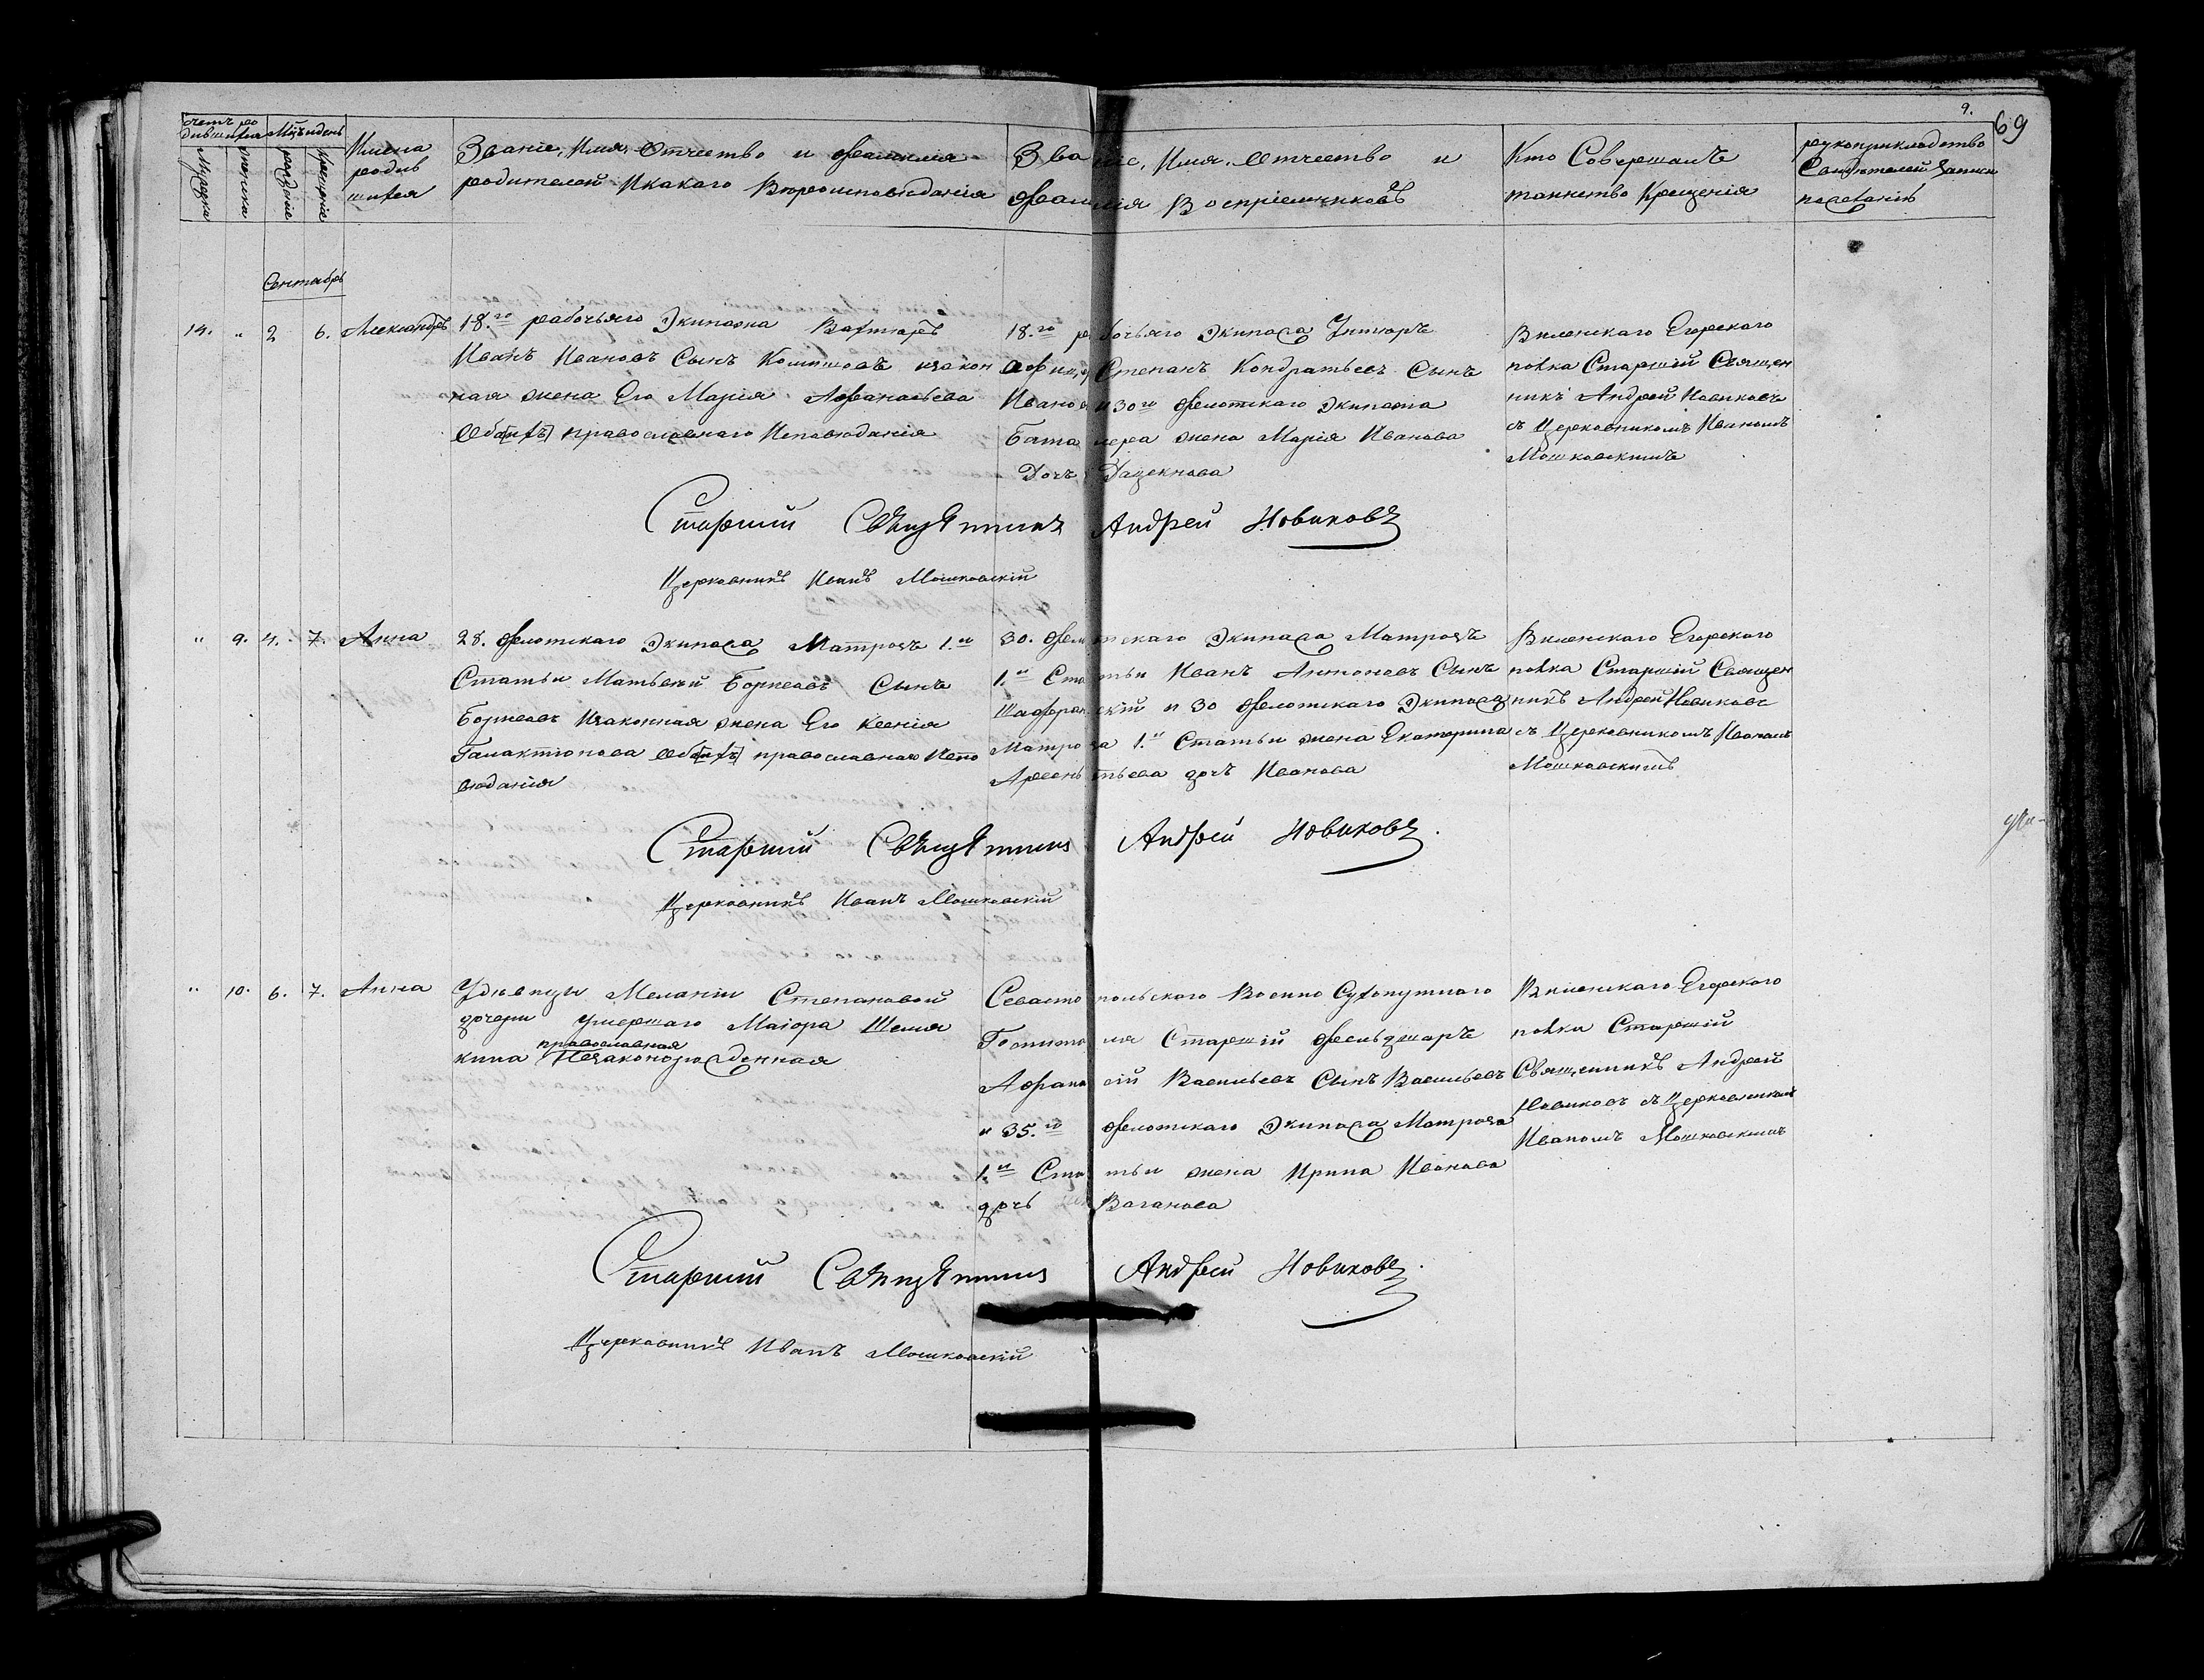 9.
69
счетъ ро
дившихся
Мужеска
женска
Мцъ и день
рожденіе
Крещеніе
Имена
родив
шихся
Званіе, Имя, Отчество и фамилія
родителей и какого Вѣроисповѣданія
Званіе, Имя, Отчество и
фамилія Воспріемниковъ
Кто Совершалъ
таинство Крещенія
рукоприкладство
Свидѣтелей Записи
по желанію
Сентябрь
14. " 2 6. Александръ
18.го рабочьяго Экипажа Вахтеръ
Иванъ Ивановъ Сынъ и закон
ная жена Его Марія Афанасьева
Оба православнаго Исповѣданія
18.го рабочьяго Экипажа Унтеръ
Офиц. Степанъ Кондратьевъ Сынъ
Ивановъ и 30го флотскаго Экипажа
Баталера жена Марія Иванова
Дочь
Виленскаго Егерского
полка Старшій Священ
никъ Андрей Новиковъ
съ Церковникомъ Иваномъ
Мошковскимъ
Старшій Священникъ Андрей Новиковъ
Церковникъ Иванъ Мошковскій
" 9. 4. 7. Анна
28. флотскаго Экипажа Матрозъ 1.й
Статьи Матьвей Борисовъ Сынъ
Борисовъ И законная жена Его Ксенія
Галактіонова Оба православнаго Испо
вѣданія
30. флотскаго Экипажа Матрозъ
1.й Статьи Иванъ Антоновъ Сынъ
Шафранскій и 30 флотскаго Экипажа
Матроза 1.й Статьи жена Екатерина
Арсентьева дочь Иванова
Виленскаго Егерского
полка Старшій Священ
никъ Андрей Новиковъ
съ Церковникомъ Иваномъ
Мошковскимъ
Старшій Священникъ Андрей Новиковъ.
Церковникъ Иванъ Мошковскій
" 10. 6. 7. Анна
У дѣвицы Меланіи Степановой
дочери умершаго Маіора Шемя
кина
православная
Незаконорожденная
Севастопольского Военно Сухопутнаго
Гошпиталя Старшій фельдшаръ
Афанасій Васильевъ Сынъ Васильевъ
и 35.го флотскаго Экипажа Матроза
1.й Статьи жена Ирина Иванова
дочь Ваганова
Виленскаго Егерского
полка Старшій
Священникъ Андрей
Новиковъ съ Церковникомъ
Иваномъ Мошковскимъ
Старшій Священникъ Андрей Новиковъ.
Церковникъ Иванъ Мошковскій